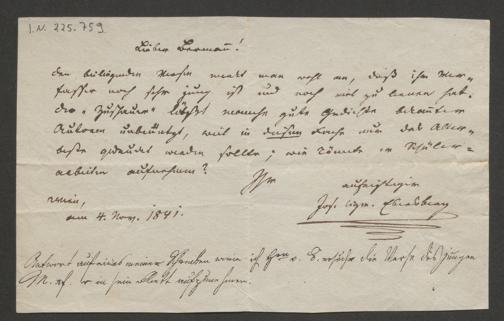 I.N. 225.759
Lieber Bermann!
Den beiliegenden Versen merkt man wohl an, daß ihr Ver-
fasser noch sehr jung ist und noch viel zu lernen hat.
Der "Zuschauer" läßt manche gute Gedichte bekannter
Autoren unbenützt, weil in diesem Fache nur das Aller-
beste gedruckt werden sollte; wie könnte er Schüler-
arbeiten aufnehmen?
Ihr
aufrichtiger
Wien,
am 4. Nov. 1841.
Jos. Sigm. Ebersberg
Antwort auf eines meiner Schreiben worin ich Hrn v. E. ersuchte die Verse des jungen
M. in sein Blatt aufzunehmen.